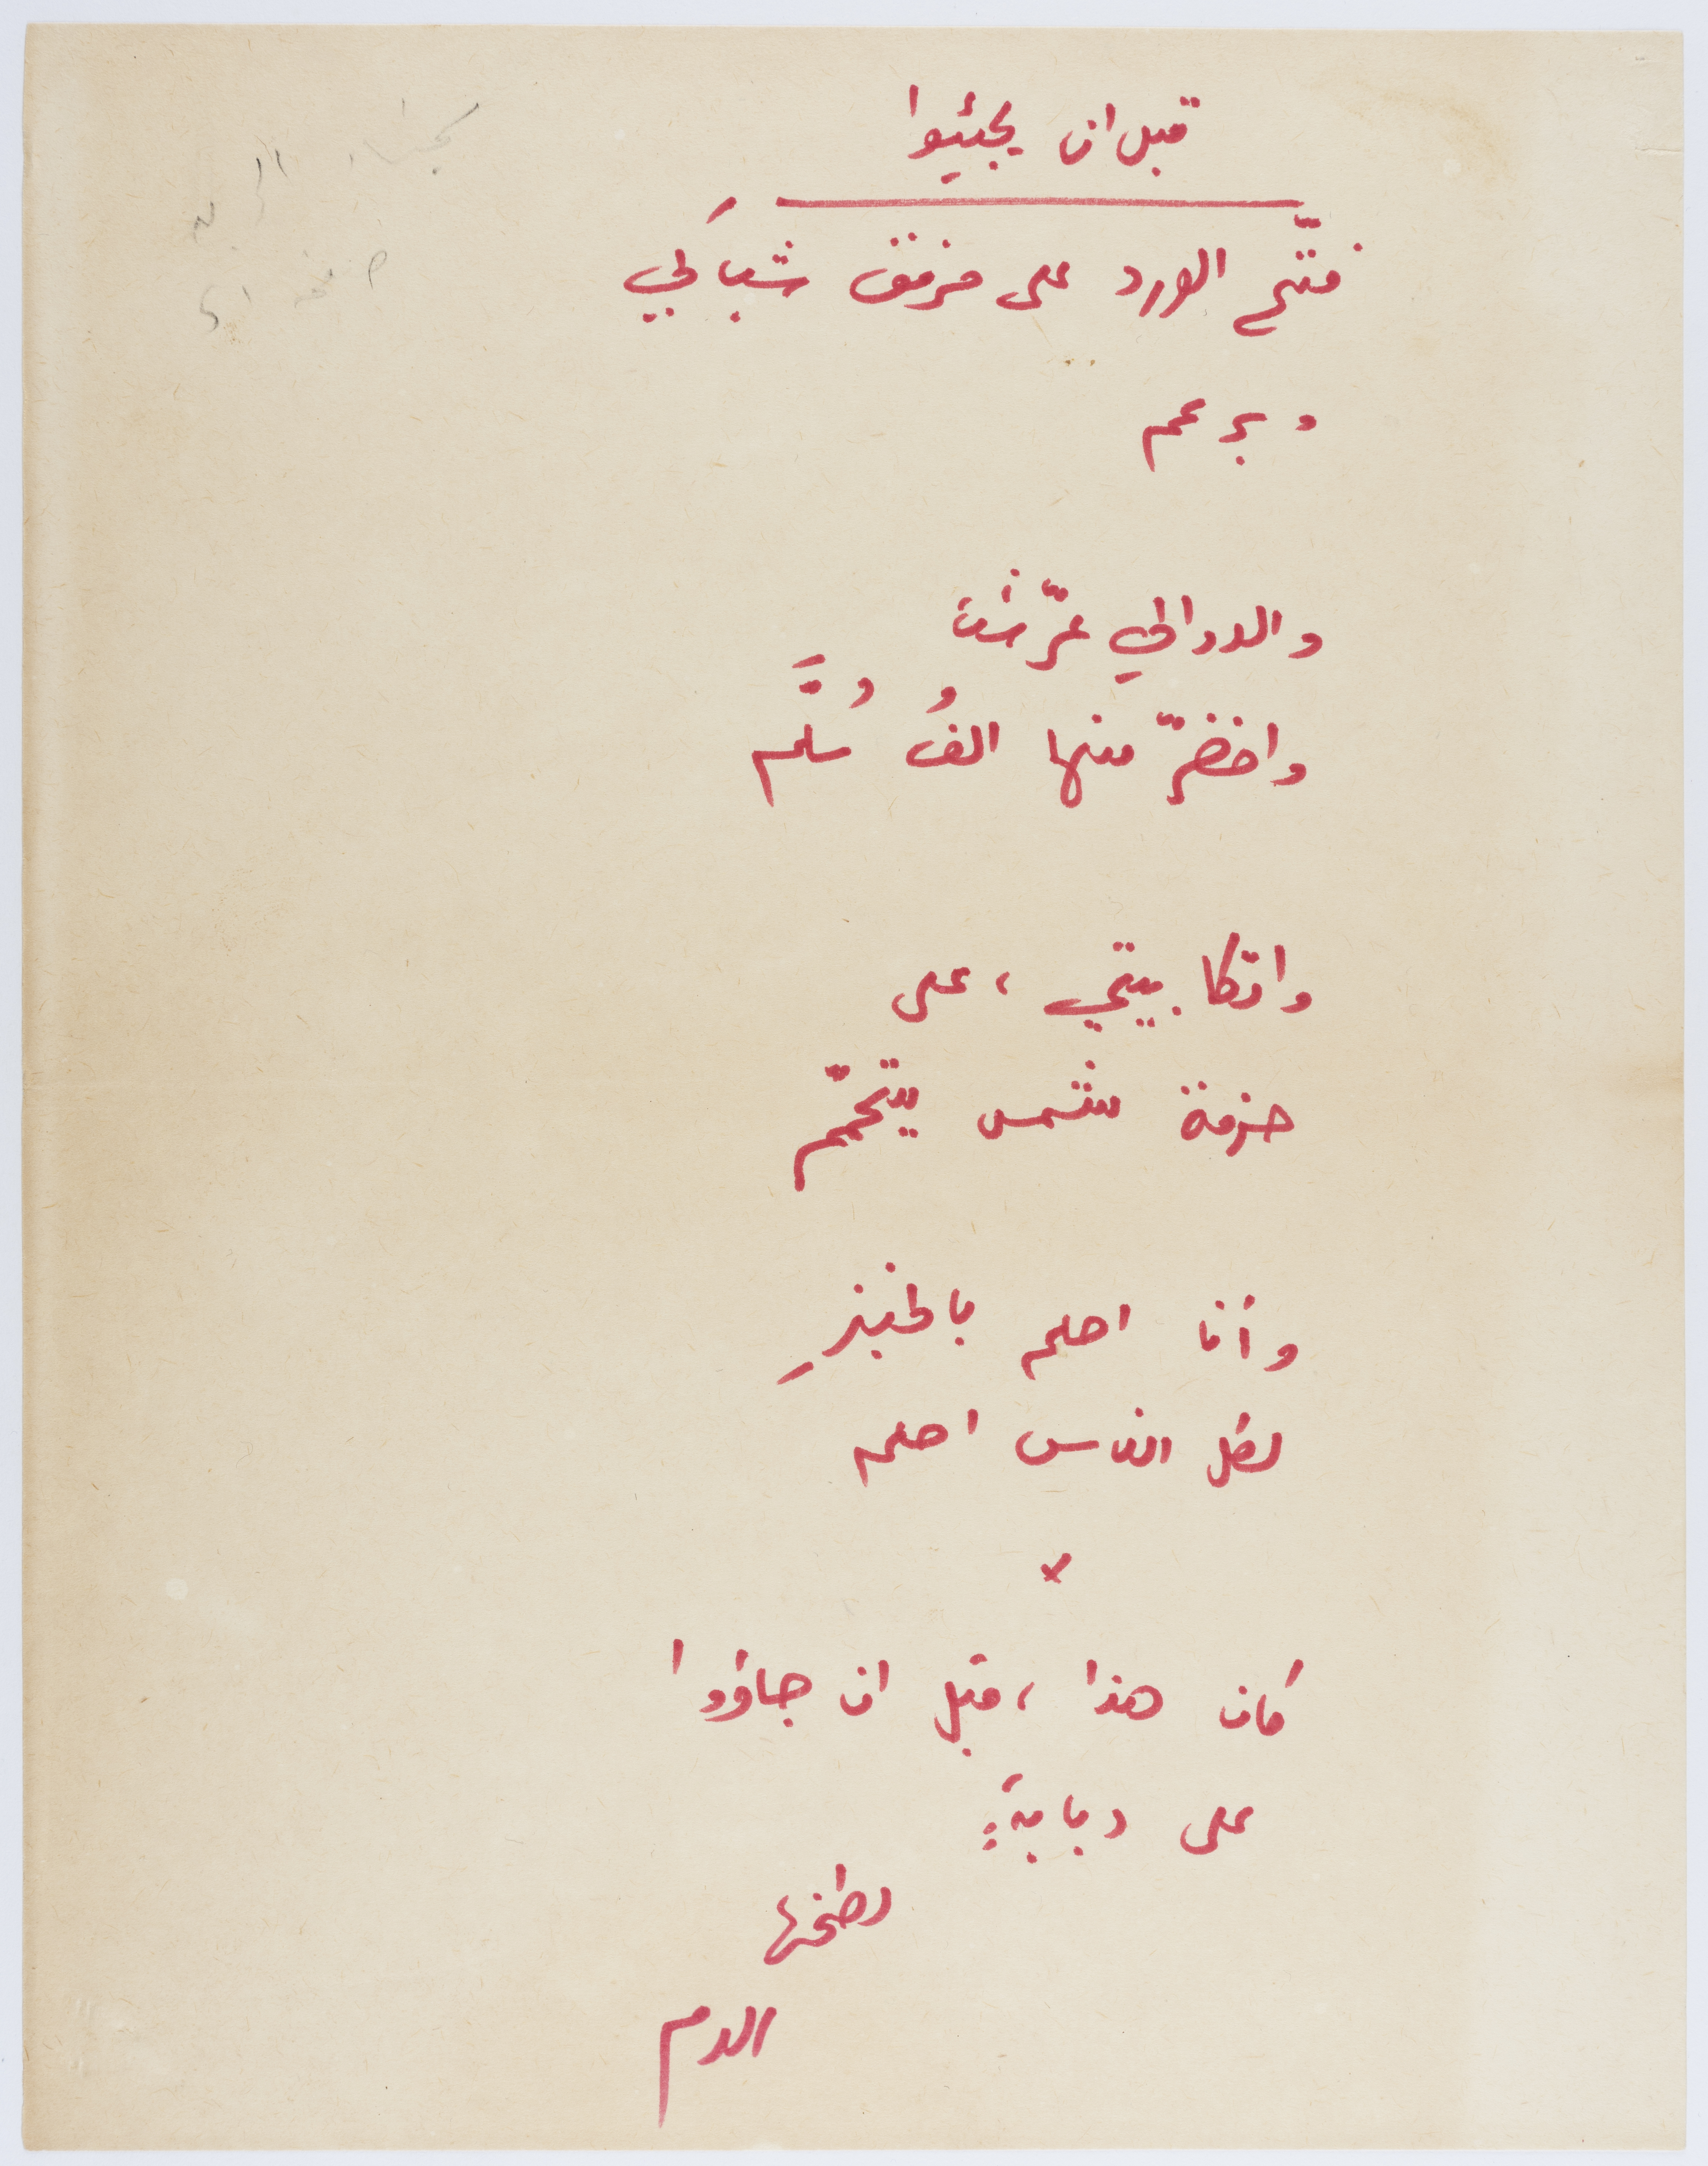 قبل ان يجيئوا
فتّح الورد على مرفق شباكَي
وبرعم
والدوالي عرّشت
واخضرّ منها الفُ سُلَّم
واتكا بيتي ، على
حزمة شمس يتحمّم
وأنا احلم بالخبزِ
لكل الناس احلم
×
كان هذا ، قبل ان جاؤوا
على دبابةٍ
لطخها
الدم